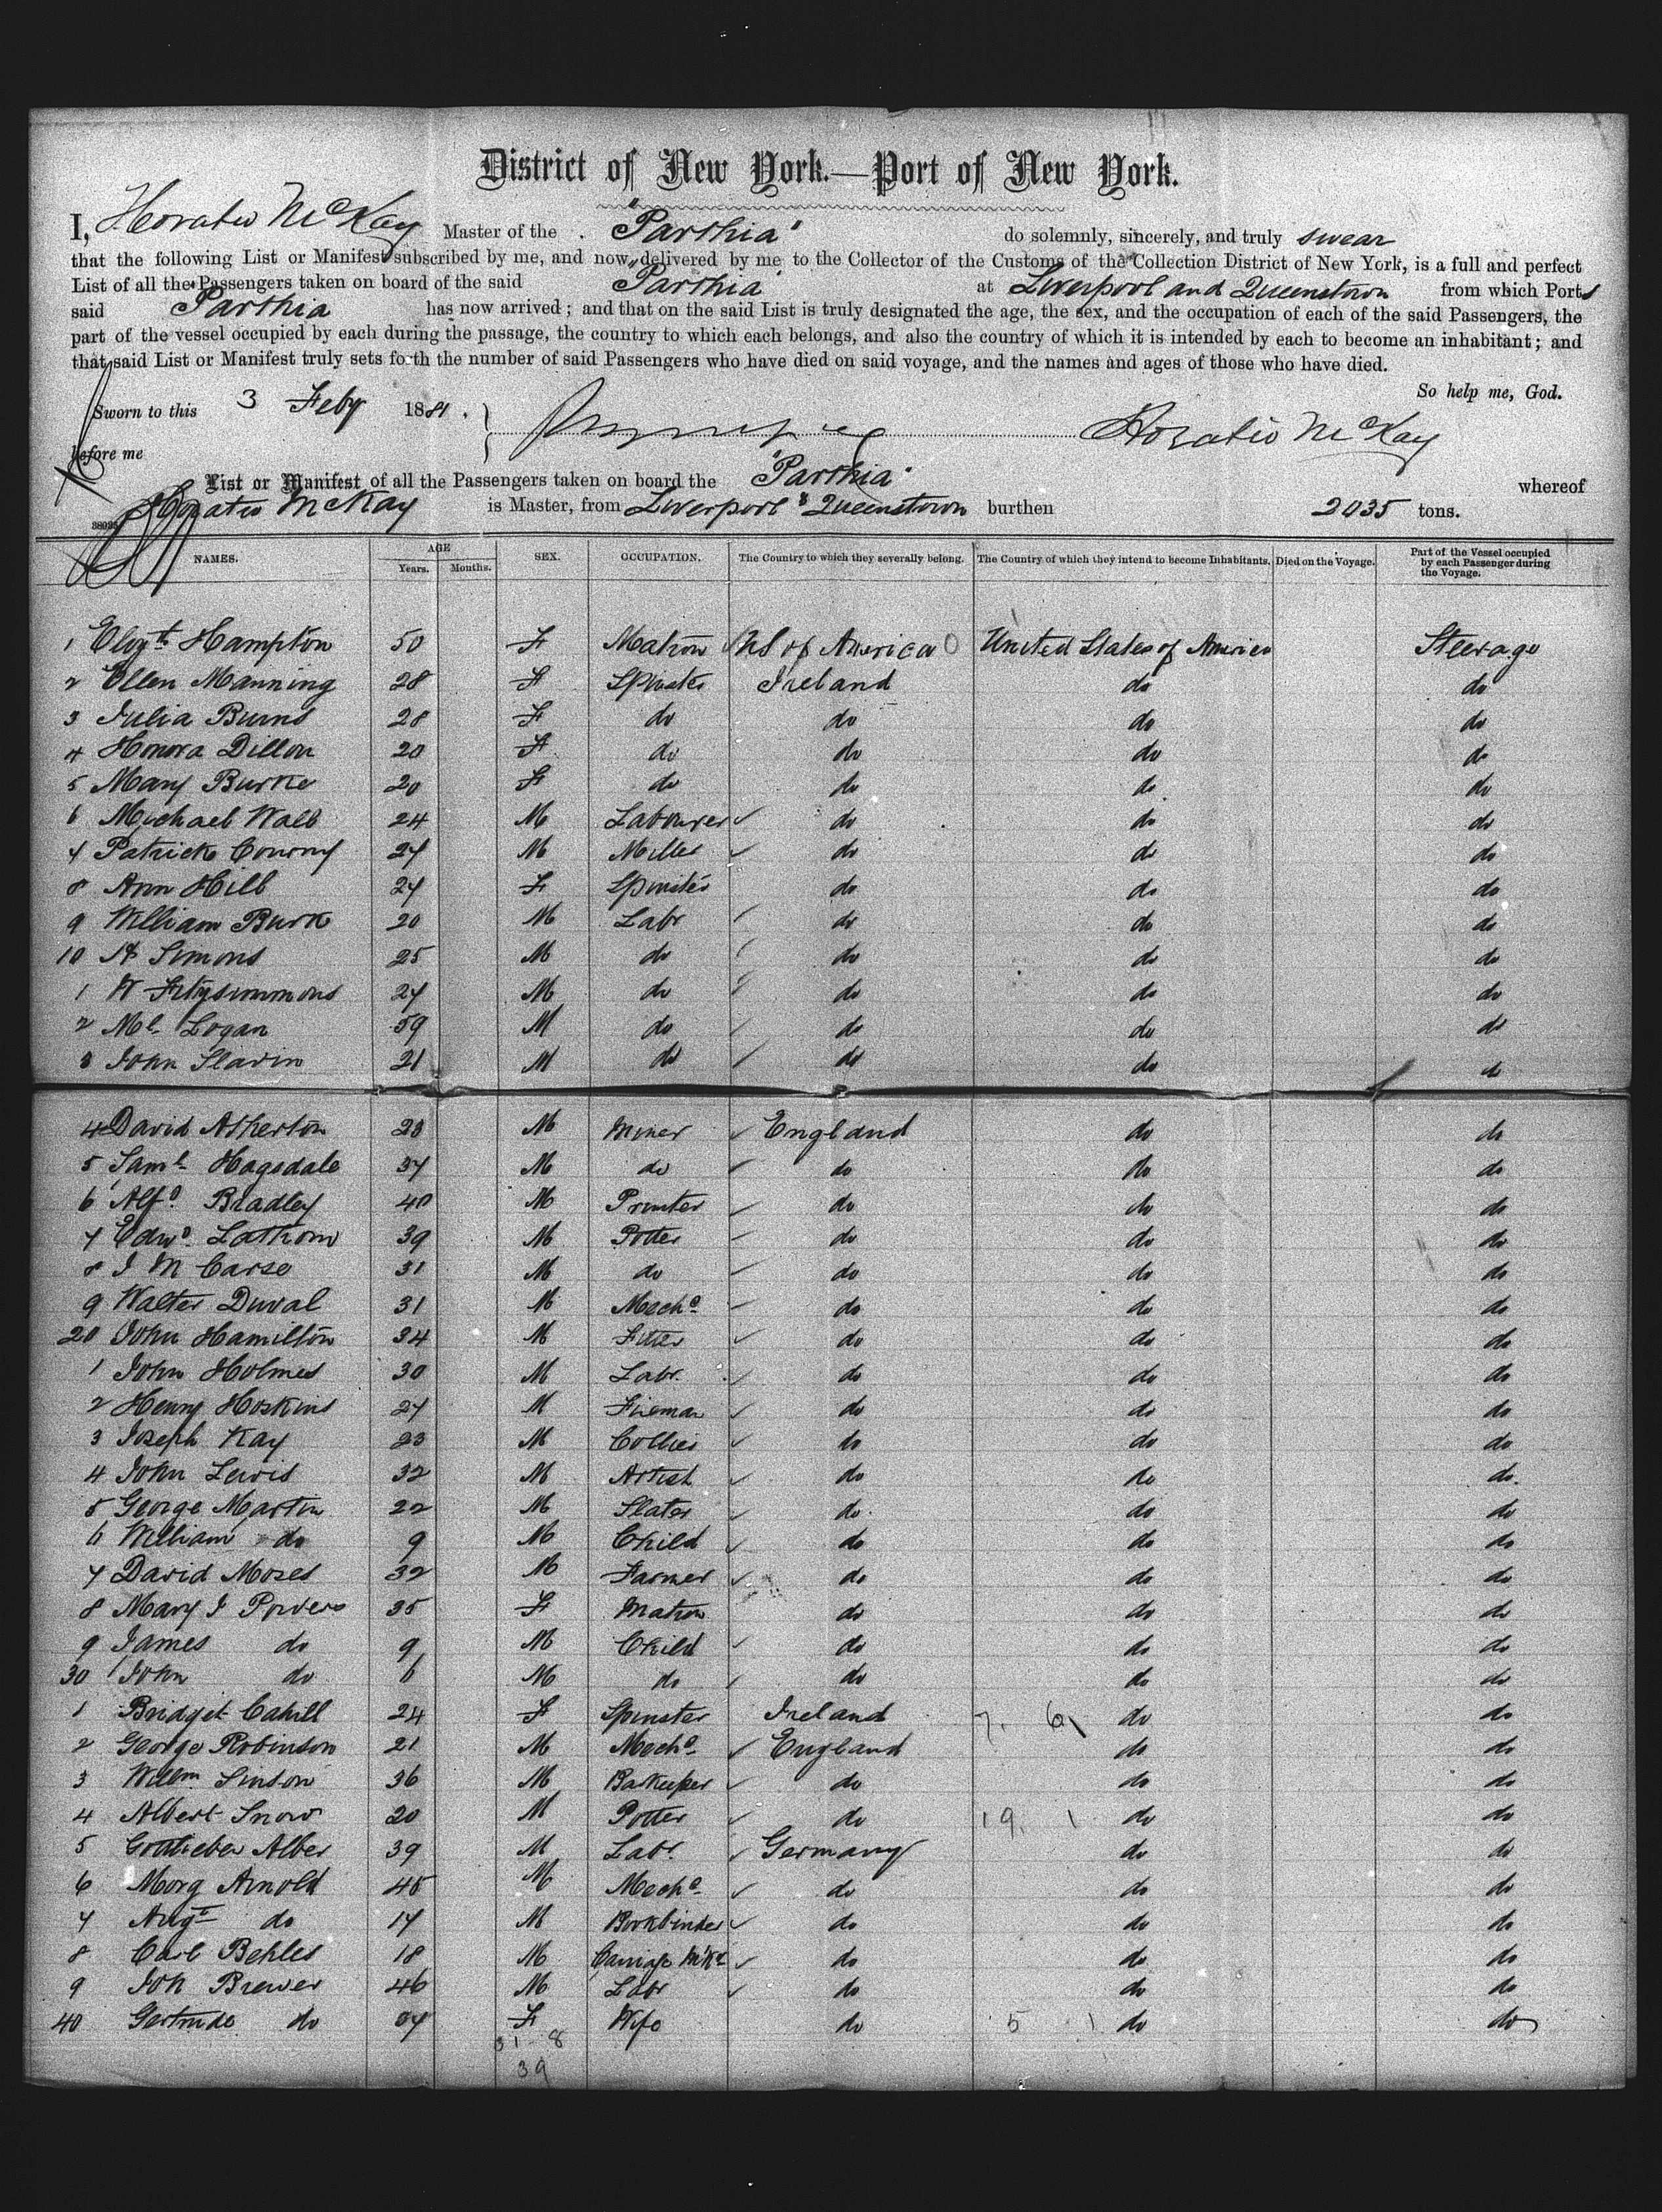 District of New York.—Port of New York.
I, Horatio McKay Master of the "Parthia" do solemnly, sincerely, and truly swear
that the following List or Manifest subscribed by me, and now delivered by me to the Collector of the Customs of the Collection District of New York, is a full and perfect
List of all the Passengers taken on board of the said "Parthia" at Liverpool and Queenstown from which Ports
said Parthia has now arrived; and that on the said List is truly designated the age, the sex, and the occupation of each of the said Passengers, the
part of the vessel occupied by each during the passage, the country to which each belongs, and also the country of which it is intended by each to become an inhabitant; and
that said List or Manifest truly sets forth the number of said Passengers who have died on said voyage, and the names and ages of those who have died.
So help me, God.
Sworn to this 3 Feby 1881.
Horatio McKay
before me
List or Manifest of all the Passengers taken on board the "Parthia" whereof
Horatio McKay is Master, from Liverpool & Queenstown burthen 2035 tons.
NAMES. AGE Years. Months. SEX. OCCUPATION. The Country to which they severally belong. The Country of which they intend to become Inhabitants. Died on the Voyage. Part of the Vessel occupied by each Passenger during the Voyage.
1 Elizth Hampton 50 F Matron U S of America United States of America Steerage
2 Ellen Manning 28 F Spinster Ireland do do
3 Julia Burns 28 F do do do do
4 Honora Dillon 20 F do do do do
5 Mary Burke 20 F do do do do
6 Michael Wall 24 M Labourer do do do
7 Patrick 27 M Miller do do do
8 Ann Hill 27 F Spinster do do do
9 William Burk 20 M Labr do do do
10 Simons 25 M do do do do
1 W Fitzsimmons 27 M do do do do
2 Ml Logan 59 M do do do do
3 John Slavin 21 M do do do do
4 David Atherton 23 M Miner England do do
5 Saml Hagsdale 37 M do do do do
6 Alfd Bradley 40 M Printer do do do
7 Edwd Lathom 39 M Potter do do do
8 J M Carse 31 M do do do do
9 Walter Duval 31 M Mechc do do do
20 John Hamilton 34 M Fitter do do do
1 John Holmes 30 M Labr. do do do
2 Henry Hoskins 27 M Fireman do do do
3 Joseph Kay 23 M Collier do do do
4 John Lewis 32 M Artist do do do.
5 George Martin 22 M Slater do do do
6 William do 9 M Child do do do
7 David Moses 32 M Farmer do do do
8 Mary J Powers 35 F Matron do do do
9 James do 9 M Child do do do
30 John do 6 M do do do do
1 Bridget Cahill 24 F Spinster Ireland 7. 6 do do
2 George Robinson 21 M Mechc England do do
3 Willm Linson 36 M Barkeeper do do do
4 Albert Snow 20 M Potter do 19. 1 do do
5 Alber 39 M Labr. Germany do do
6 Morg Arnold 45 M Mechc do do do
7 Augt do 17 M Bookbinder do do do
8 Carl Behles 18 M Carriage Mkr do do do
9 Joh Brewer 46 M Labr do do do
40 Gertrude do F Wife do 5 1 do do
31 8
39